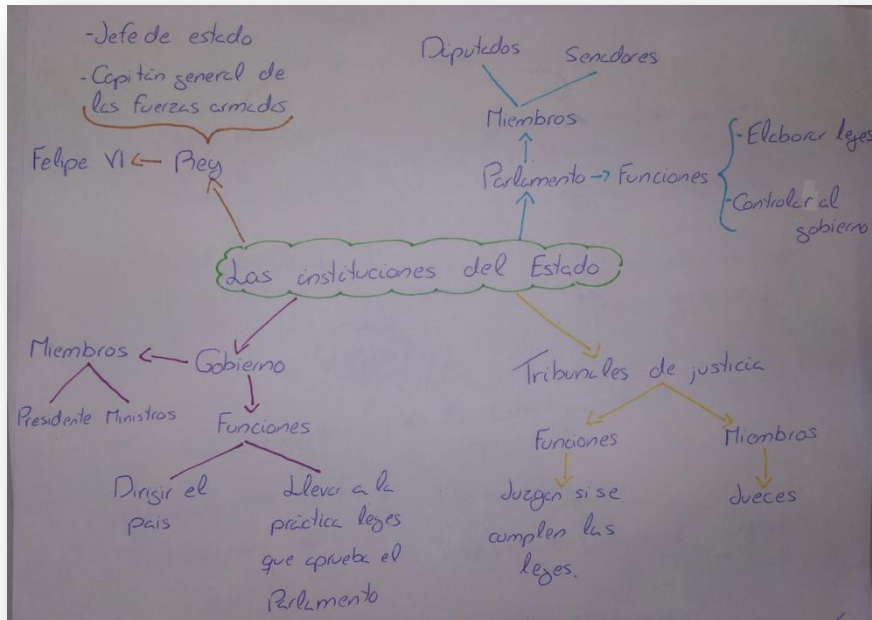 -Jefe de estado
-Capitán general de
las fuerzas armadas
Felipe VI
Rey
Diputados
Senadores
Miembros
Parlamento
Funciones
-Elaborar leyes
-Controlar al
gobierno
Las instituciones del Estado
Miembros
Gobierno
Presidente
Ministros
Funciones
Dirigir el
país
Llevar a la
práctica leyes
que aprueba el
Parlamento
Tribunales de justicia
Funciones
Miembros
Juzgan si se
cumplen las
leyes.
Jueces